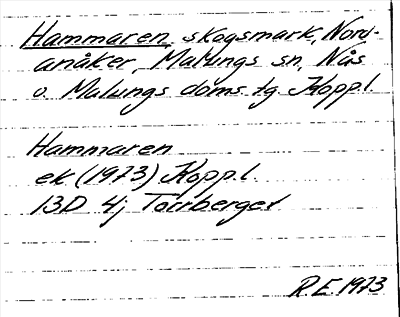 Hammaren, skogsmark, Nord-
anåker, Malungs sn, Nås
o. Malungs doms. tg Kopp.l.
Hammaren
ek. (1973) Kopp.l.
13D 4j Torrberget
R.E. 1973